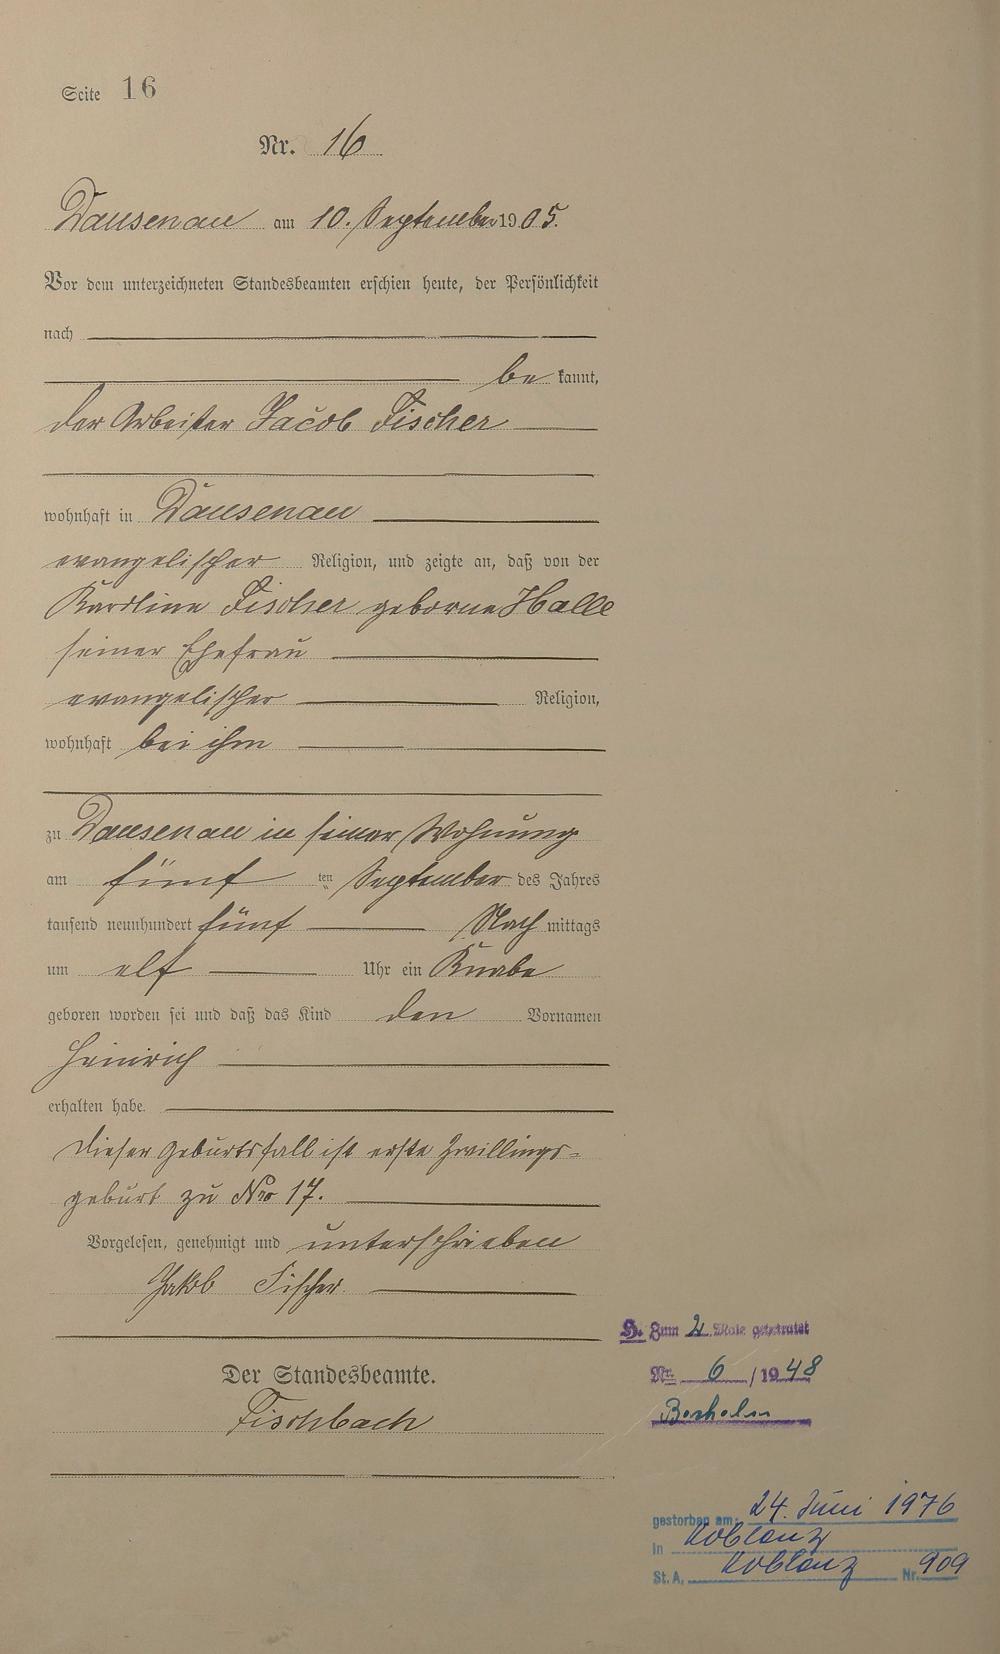 Seite 16
Nr. 16
Dausenau am 10. September 1905.
Vor dem unterzeichneten Standesbeamten erschien heute, der Persönlichkeit
nach
be kannt,
der Arbeiter Jacob Fischer
wohnhaft in Dausenau
evangelischer Religion, und zeigte an, daß von der
Karoline Fischer geborne Halle
seiner Ehefrau
evangelischer Religion,
wohnhaft bei ihm
zu Dausenau in seiner Wohnung
am fünf ten September des Jahres
tausend neunhundert fünf Nach mittags
um elf Uhr ein Knabe
geboren worden sei und daß das Kind den Vornamen
Heinrich
erhalten habe.
Dieser Geburtsfall ist erste Zwillings=
geburt zu Nro 17.
Vorgelesen, genehmigt und unterschrieben
Jakob Fischer
Der Standesbeamte.
Fischbach
H. Zum 2. Male geheiratet
Nr. 6 / 1948
gestorben am: 24. Juni 1976
in Koblenz
St. A. Koblenz Nr. 909